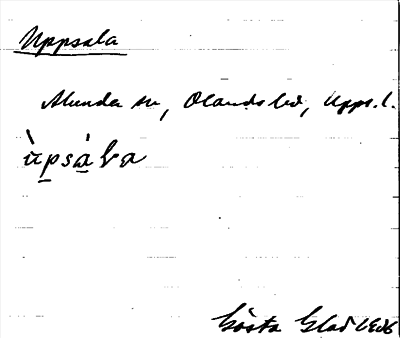 Uppsala
Alunda sn, Olands hd, Upps. l.
ùpsàla
Gösta